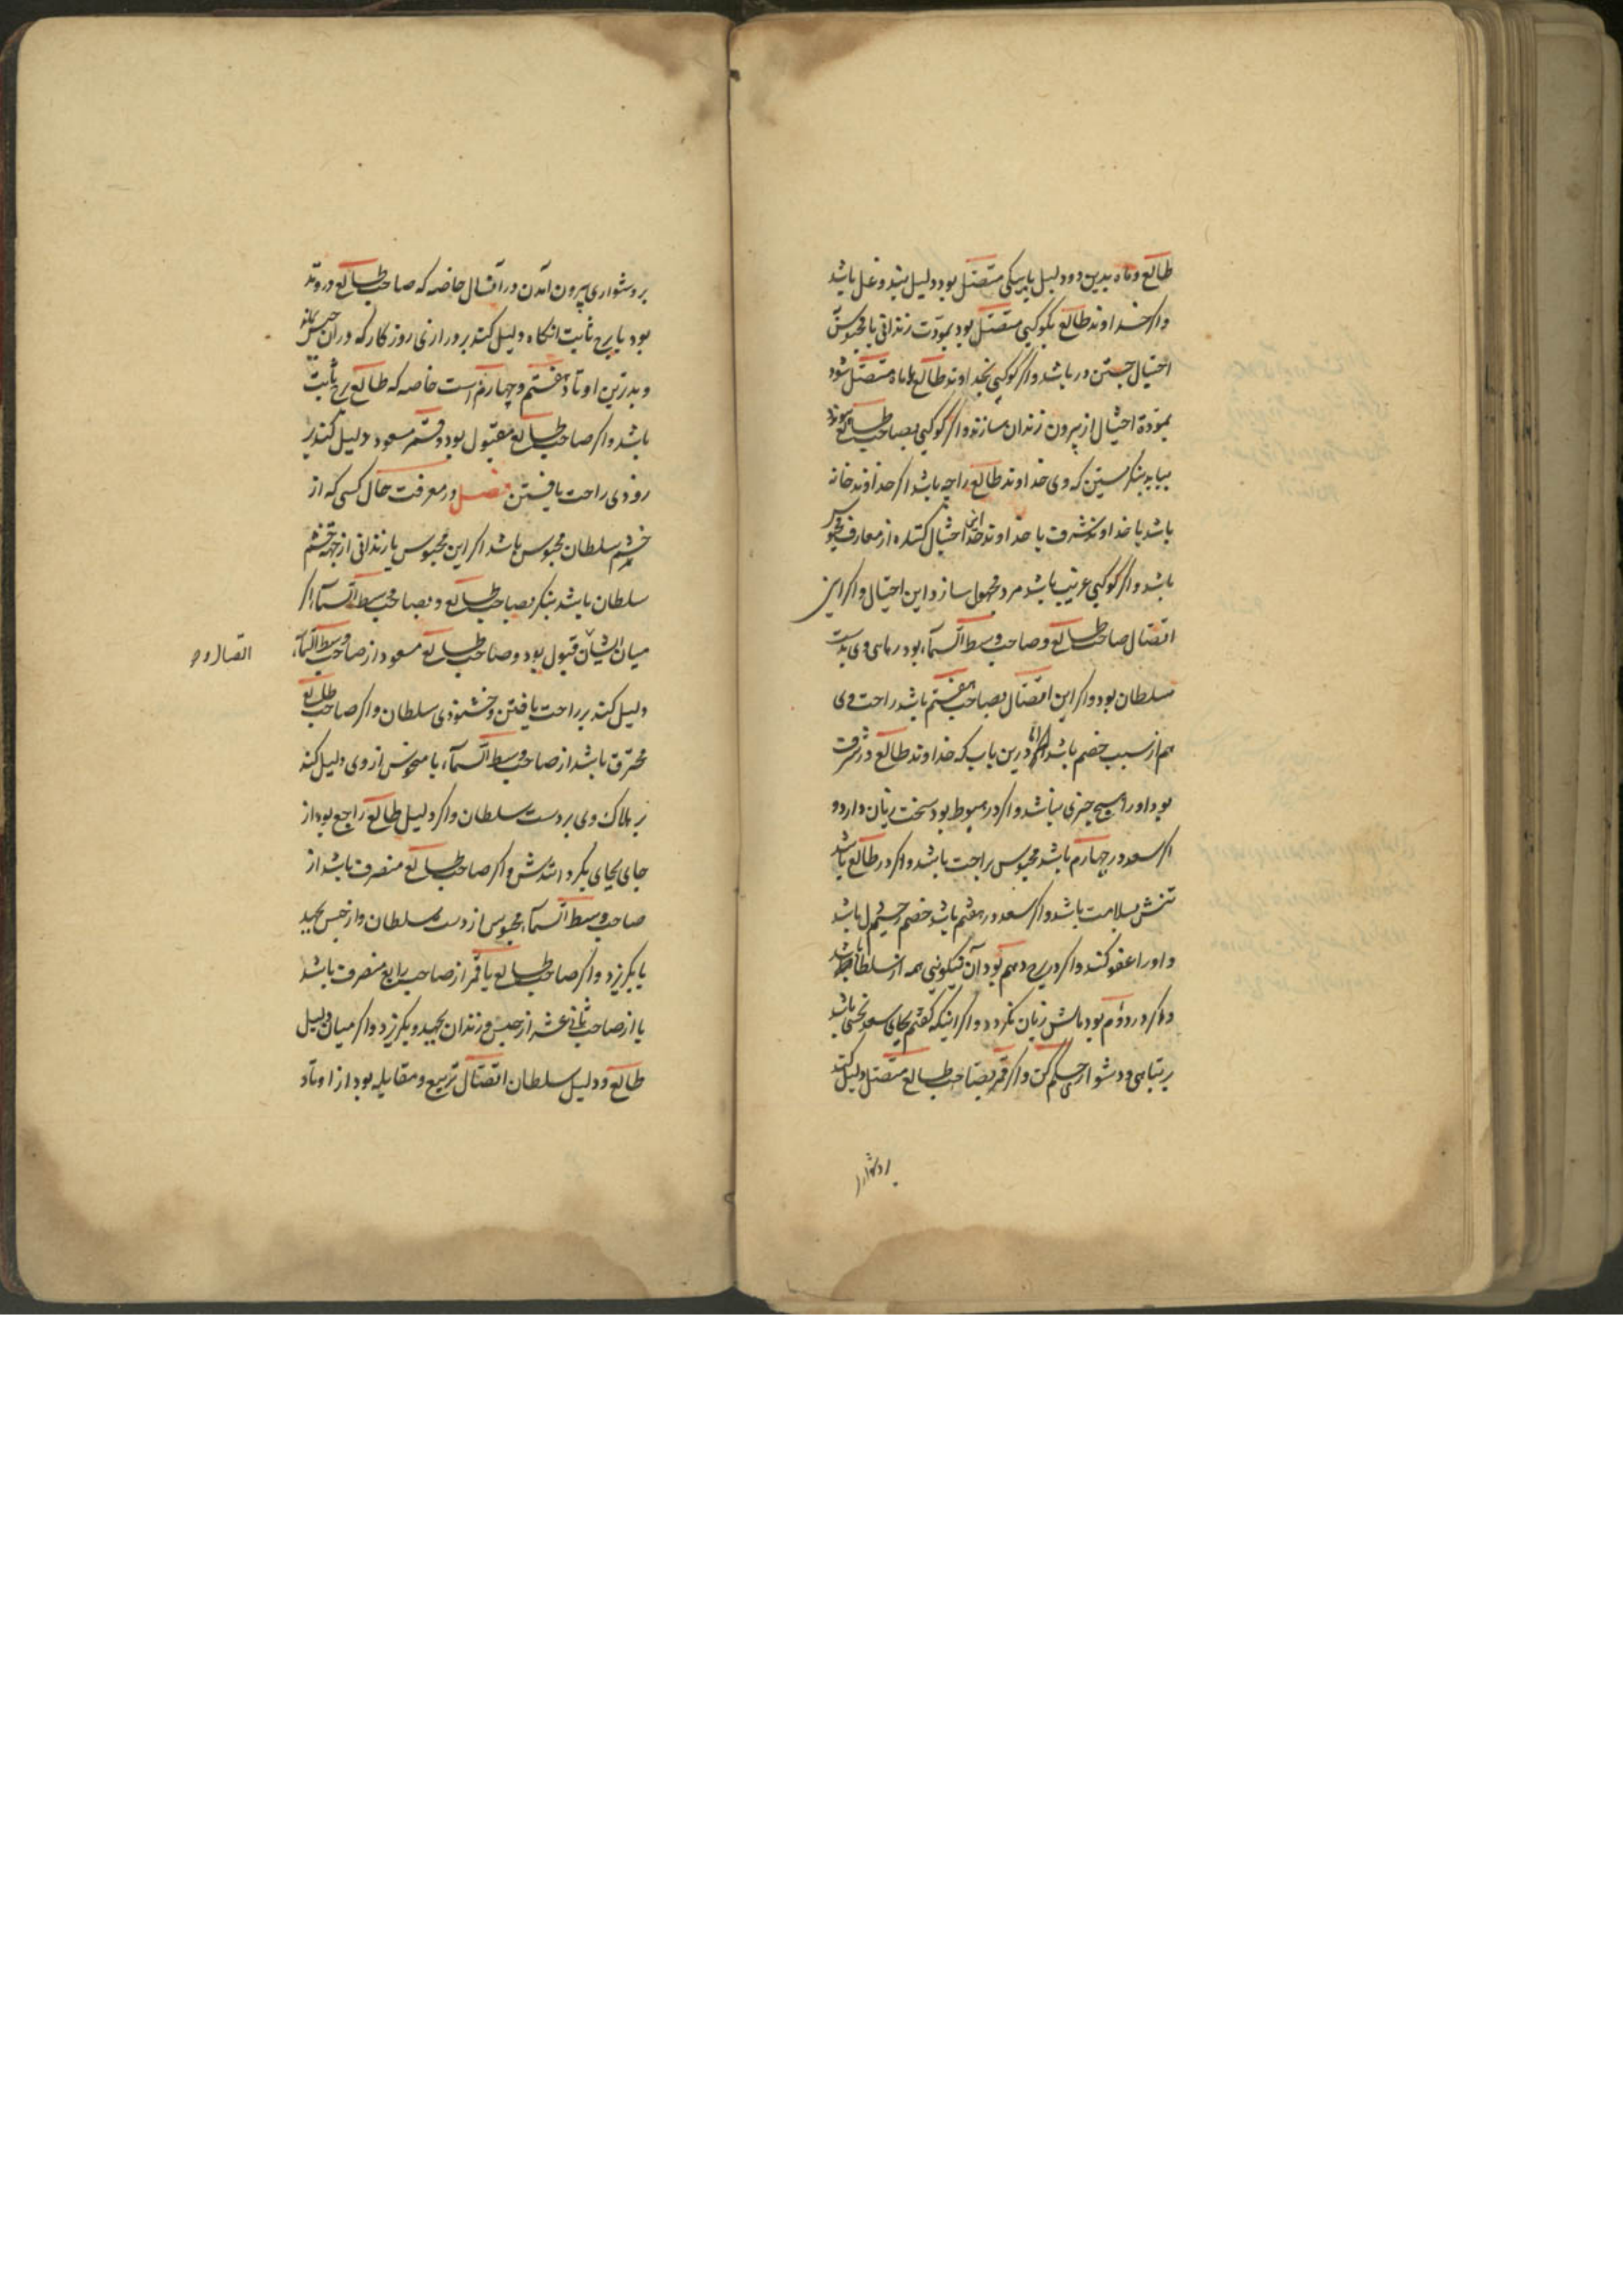 طالع و ماه بدین دو دلیل یا بیکی متصل بود دلیل بند و غل باشد
واکر خداوند طالع بکوکبی متصل بود بمودت زندانی یا محبوس
احتیال جستن در باشد واکر کوکبی بخداوند طالع یا ماه متصل شود
بمودة احتیال از بیرون زندان سازند واکر کوکبی بصاحب طالع پیوندد
بباید بنکرستن که وی خداوند طالع را چه باشد اکر خداوند خانه
باشد یا خداوند شرف یا خداوند حد این احتیال کننده از معارف محبوس
باشد واکر کوکبی غریب باشد مرد مجهول سازد این احتیال واکر این
اتصال صاحب طالع و صاحب وسط السماء بود رهایی وی بدست
سلطان بود واکر این اتصال بصاحب هفتم باشد راحت وی
هم از سبب خصم باشد درین باب که خداوند طالع در شرف
بود او را هیچ چیزی نباشد واکر در هبوط بود سخت زیان دارد و
اکر سعد در چهارم باشد محبوس براحت باشد واکر در طالع باشد
تنش بسلامت باشد واکر سعد در هفتم باشد خصم رحیم دل باشد
و او را عفو کند واکر در برج دهم بود آن نیکوئی همه از سلطان باشد
واکر در دوم بود مالش زیان نکردد واکر اینکه کفتم بجای سعد نحس باشد
بر تباهی و دشوار حکم کن واکر قمر بصاحب طالع متصل دلیل کند
بر دشواری
بر دشواری بیرون آمدن در آن حال خاصه که صاحب طالع در وتد
بود یا برج ثابت انکاه دلیل کند بر درازی روزکار که در آن حبس بماند
و بدترین اوتاد هفتم و چهارم است خاصه که طالع برج ثابت
باشد واکر صاحب طالع مقبول بود و قمر مسعود دلیل کند بر
زودی راحت یافتن فصل در معرفت حال کسی که از
خشم سلطان محبوس باشد اکر این محبوس یا زندانی از جهة خشم
سلطان باشد بنکر بصاحب طالع و بصاحب وسط السماء اکر
میان ایشان قبول بود و صاحب طالع مسعود از صاحب وسط السماء
اتصال و
دلیل کند بر راحت یافتن و خشنودی سلطان واکر صاحب طالع
محترق باشد از صاحب وسط السماء یا منحوس از وی دلیل کند
بر هلاک وی بر دست سلطان واکر دلیل طالع راجع بود از
جای بجای بکردانندش واکر صاحب طالع منصرف باشد از
صاحب وسط السماء محبوس از دست سلطان و از حبس بجهد
یا بکریزد واکر صاحب طالع یا قمر از صاحب رابع منصرف باشد
یا از صاحب ثانی عشر از حبس و زندان بجهد و بکریزد واکر میان دلیل
طالع و دلیل سلطان اتصال تربیع و مقابله بود از اوتاد